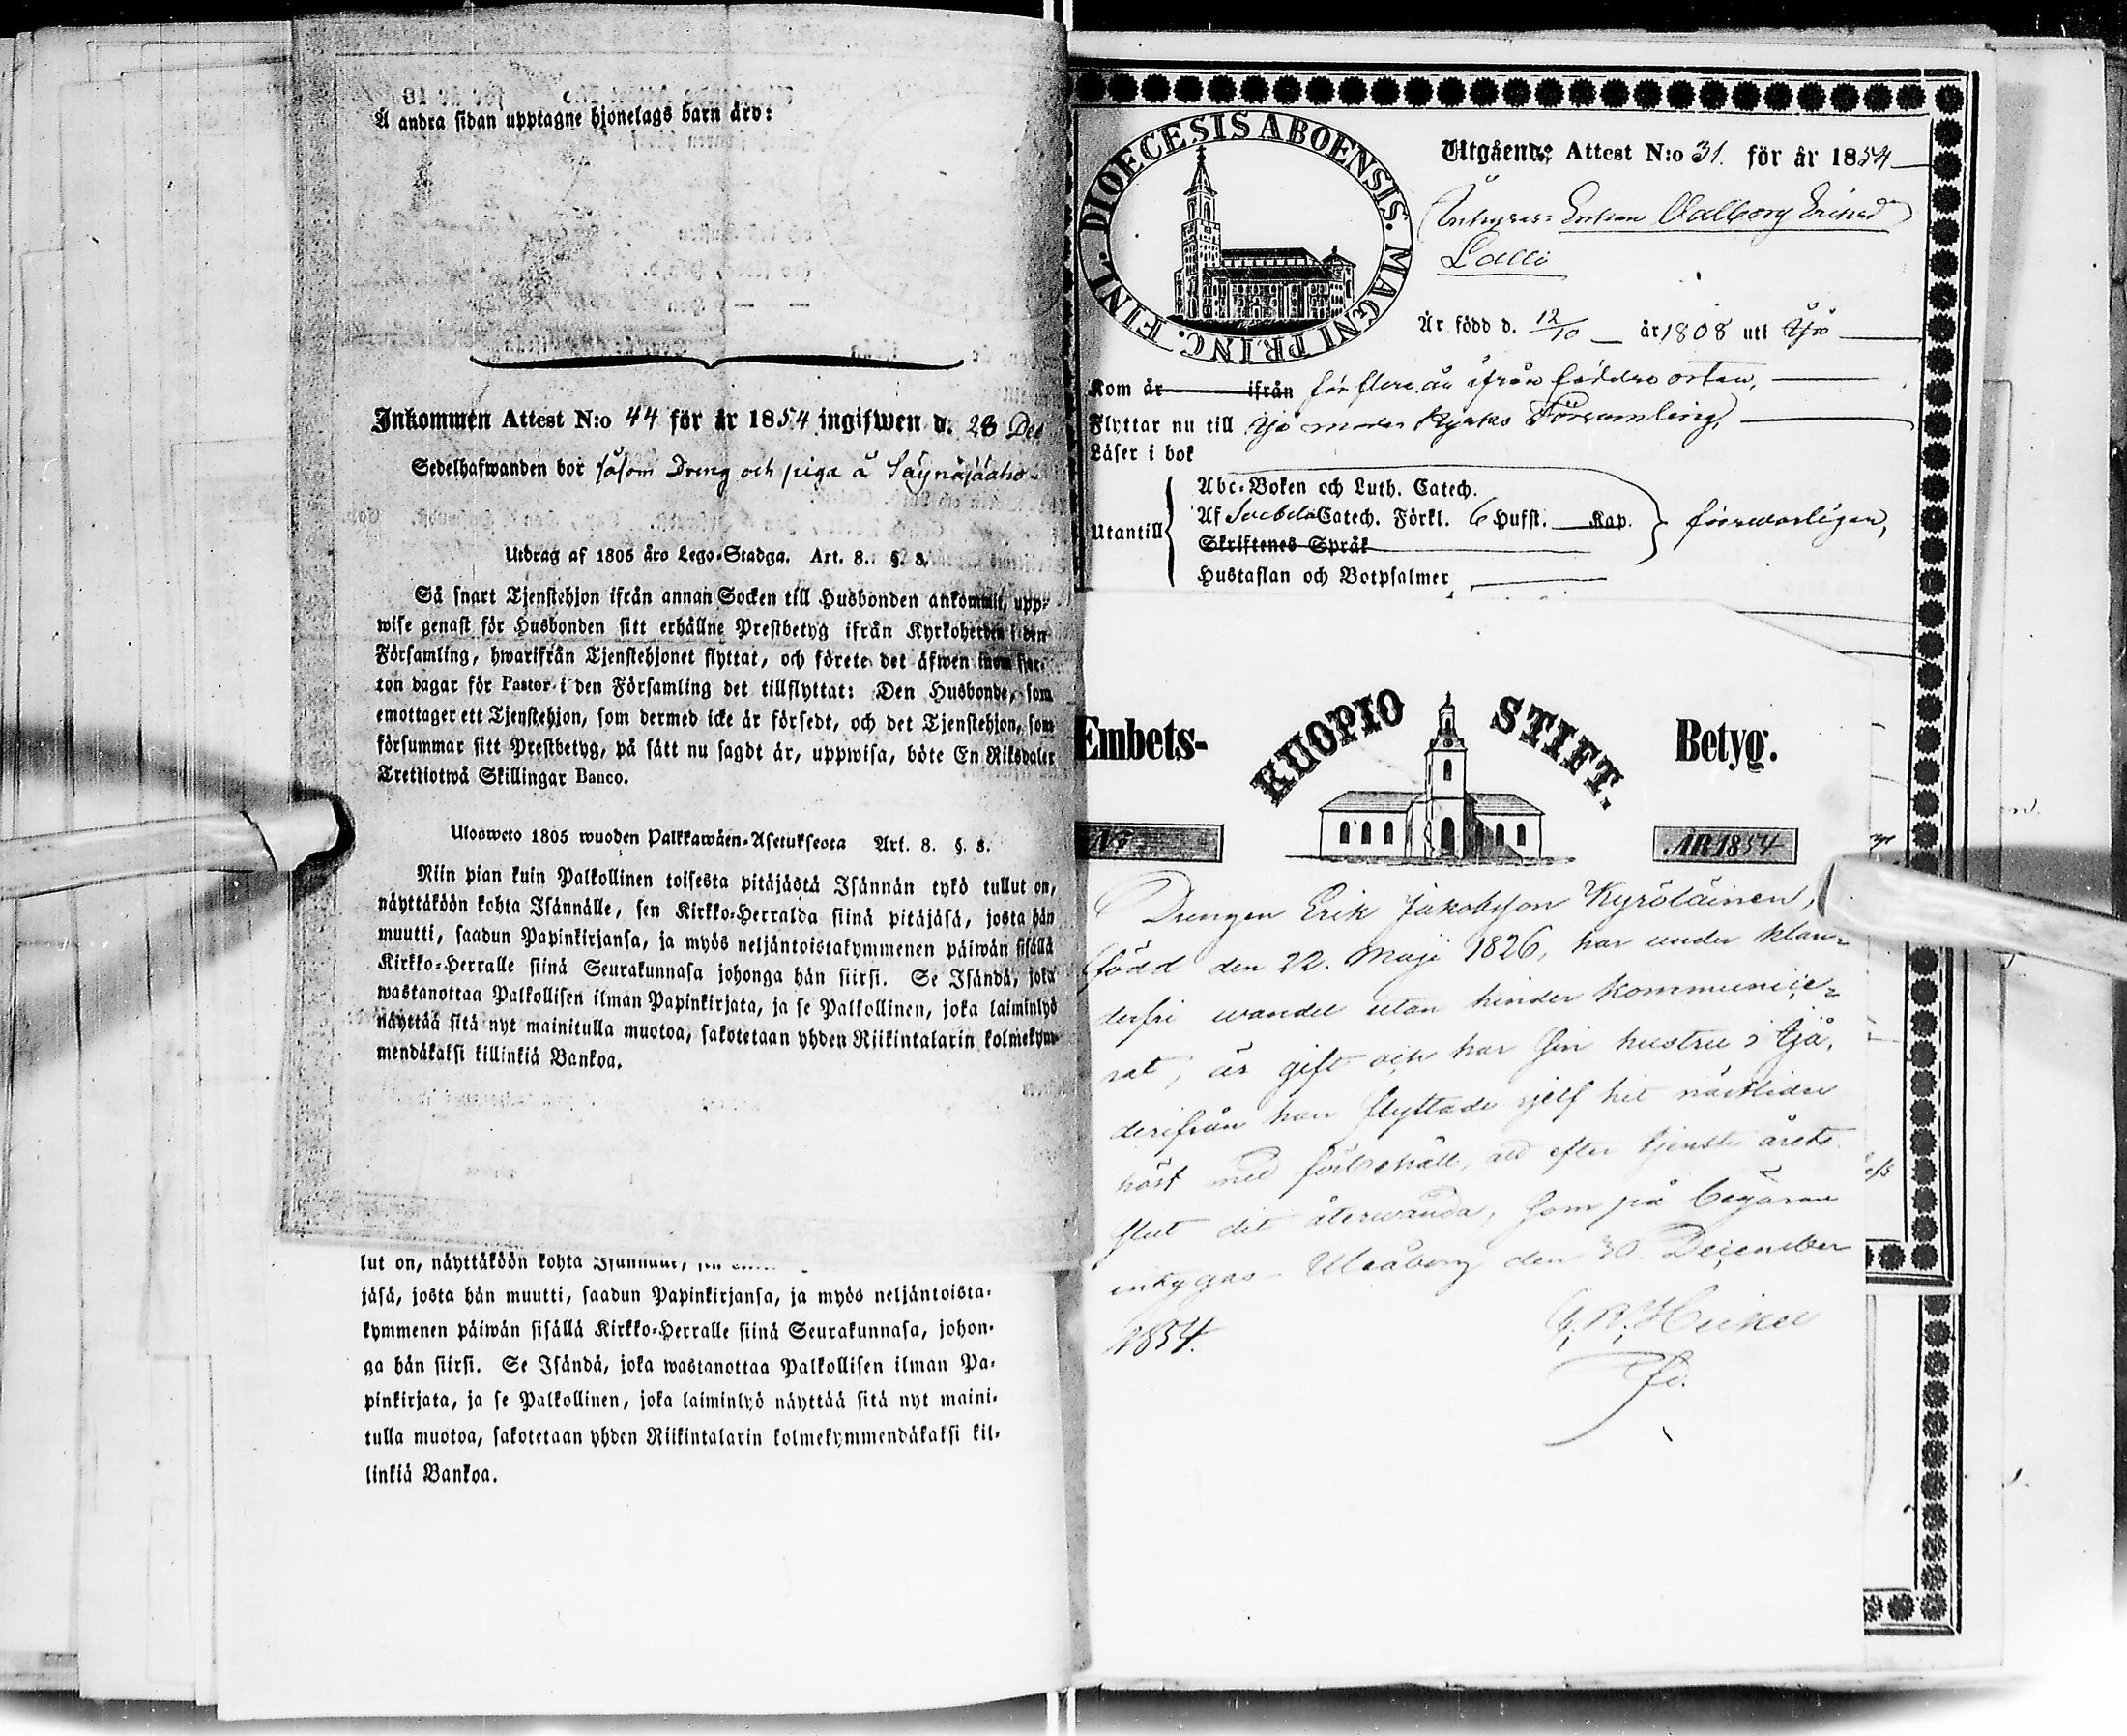 Å andra sidan upptagne hjonelags barn äro:
Inkommen Attest N:o 44 för år 1854 ingifwen d. 28 Dec
Sedelhafwanden bor såsom Dreng och piga å Säynäjäaho
Utdrag af 1805 års Lego-Stadga. Art. 8. §. 8.
Så snart Tjenstehjon ifrån annan Socken till Husbonden ankommit, upp-
wise genast för Husbonden sitt erhållne Prestbetyg ifrån Kyrkoherden i den
Församling, hwarifrån Tjenstehjonet flyttat, och förete det äfwen inom fjor-
ton dagar för Pastor i den Församling det tillflyttat: Den Husbonde, som
emottager ett Tjenstehjon, som dermed icke är försedt, och det Tjenstehjon, som
försummar sitt Prestbetyg, på sätt nu sagdt är, uppwisa, böte En Riksdaler
Trettiotwå Skillingar Banco.
Ulosweto 1805 wuoden Palkkawäen-Asetuksesta Art. 8. §. 8.
Niin pian kuin Palkollinen toisesta pitäjästä Isännän tykö tullut on,
näyttäköön kohta Isännälle, sen Kirkko-Herralda siinä pitäjäsä, josta hän
muutti, saadun Papinkirjansa, ja myös neljäntoistakymmenen päiwän sisällä
Kirkko-Herralle siinä Seurakunnasa johonga hän siirsi. Se Isändä, joka
wastanottaa Palkollisen ilman Papinkirjata, ja se Palkollinen, joka laiminlyö
näyttää sitä nyt mainitulla muotoa, sakotetaan yhden Riikintalarin kolmekym-
mendäkaksi killinkiä Bankoa.
lut on, näyttäköön kohta Isännälle, sen
jäsä, josta hän muutti, saadun Papinkirjansa, ja myös neljäntoista-
kymmenen päiwän sisällä Kirkko-Herralle siinä Seurakunnasa, johon-
ga hän siirsi. Se Isändä, joka wastanottaa Palkollisen ilman Pa-
pinkirjata, ja se Palkollinen, joka laiminlyö näyttää sitä nyt maini-
tulla muotoa, sakotetaan yhden Riikintalarin kolmekymmendäkaksi kil-
linkiä Bankoa.
DIOECESIS ABOENSIS. MAGNI PRINC. FINL.
Utgående Attest N:o 31. för år 1854
Inhyses- Enkan Walborg Ericsd
Lalli
Är född d. 12/10 år 1808 uti Ijo
Kom år ifrån för flere år ifrån födelse orten,
Flyttar nu till Ijo moder kyrko Församling,
Läser i bok
Utantill
Abc-Boken och Luth. Catech.
Af Svebelii Catech. Förkl. 6 Hufst. Kap.
försvarligen,
Skriftenes Språk
Hustaflan och Botpsalmer
Embets-
KUOPIO STIFT.
Betyg.
No
ÅR 1854
Drengen Erik Jakobsson Kyröläinen,
född den 22. Maji 1826, har under klan-
derfri wandel utan hinder kommunice-
rat, är gift och har sin hustru i Ijo,
derifrån han flyttade sjelf hit nästlidne
höst med förbehåll, att efter tjenste årets
slut dit återwända, som på begäran
intygas. Uleåborg den 30 December
1854.